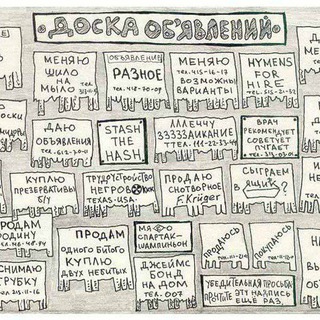 ДОСКА ОБ'ЯВЛЕНИЙ
МЕНЯЮ
ШИЛО
НА
МЫЛО
ОБЪЯВЛЕНИЕ
РАЗНОЕ
ТЕЛ. 418-70-09
МЕНЯЮ
ТЕЛ. 415-16-17
ВОЗМОЖНЫ
ВАРИАНТЫ
HYMENS
FOR
HIRE
ДАЮ
ОБЪЯВЛЕНИЯ
STASH
THE
HASH
АЛЛЕЧЧУ
ЗЗЗЗЗАИКАНИЕ
ВРАЧ
РЕКОМЕНДУЕТ
СОВЕТУЕТ
ПУГАЕТ
КУПЛЮ
ПРЕЗЕРВАТИВЫ
Б/У
ТРУДУСТРОЙСТВО
НЕГРОВ
TEXAS. USA.
ПРОДАЮ
СНОТВОРНОЕ
F. Krüger
СЫГРАЕМ
В ЯЩИК?
ПРОДАМ
РОДИНУ
ПРОДАМ
ОДНОГО БИТОГО
КУПЛЮ
ДВУХ НЕБИТЫХ
СПАРТАК-
ШАМПИНЬОН
ПРОДАЮСЬ
ПОКУПАЮСЬ
СНИМАЮ
ТРУБКУ
ДЖЕЙМС
БОНД
НА ДОМ
ТЕЛ. 007
УБЕДИТЕЛЬНАЯ ПРОСЬБА
ПРОЧТИТЕ ЭТУ НАДПИСЬ
ЕЩЁ РАЗ.